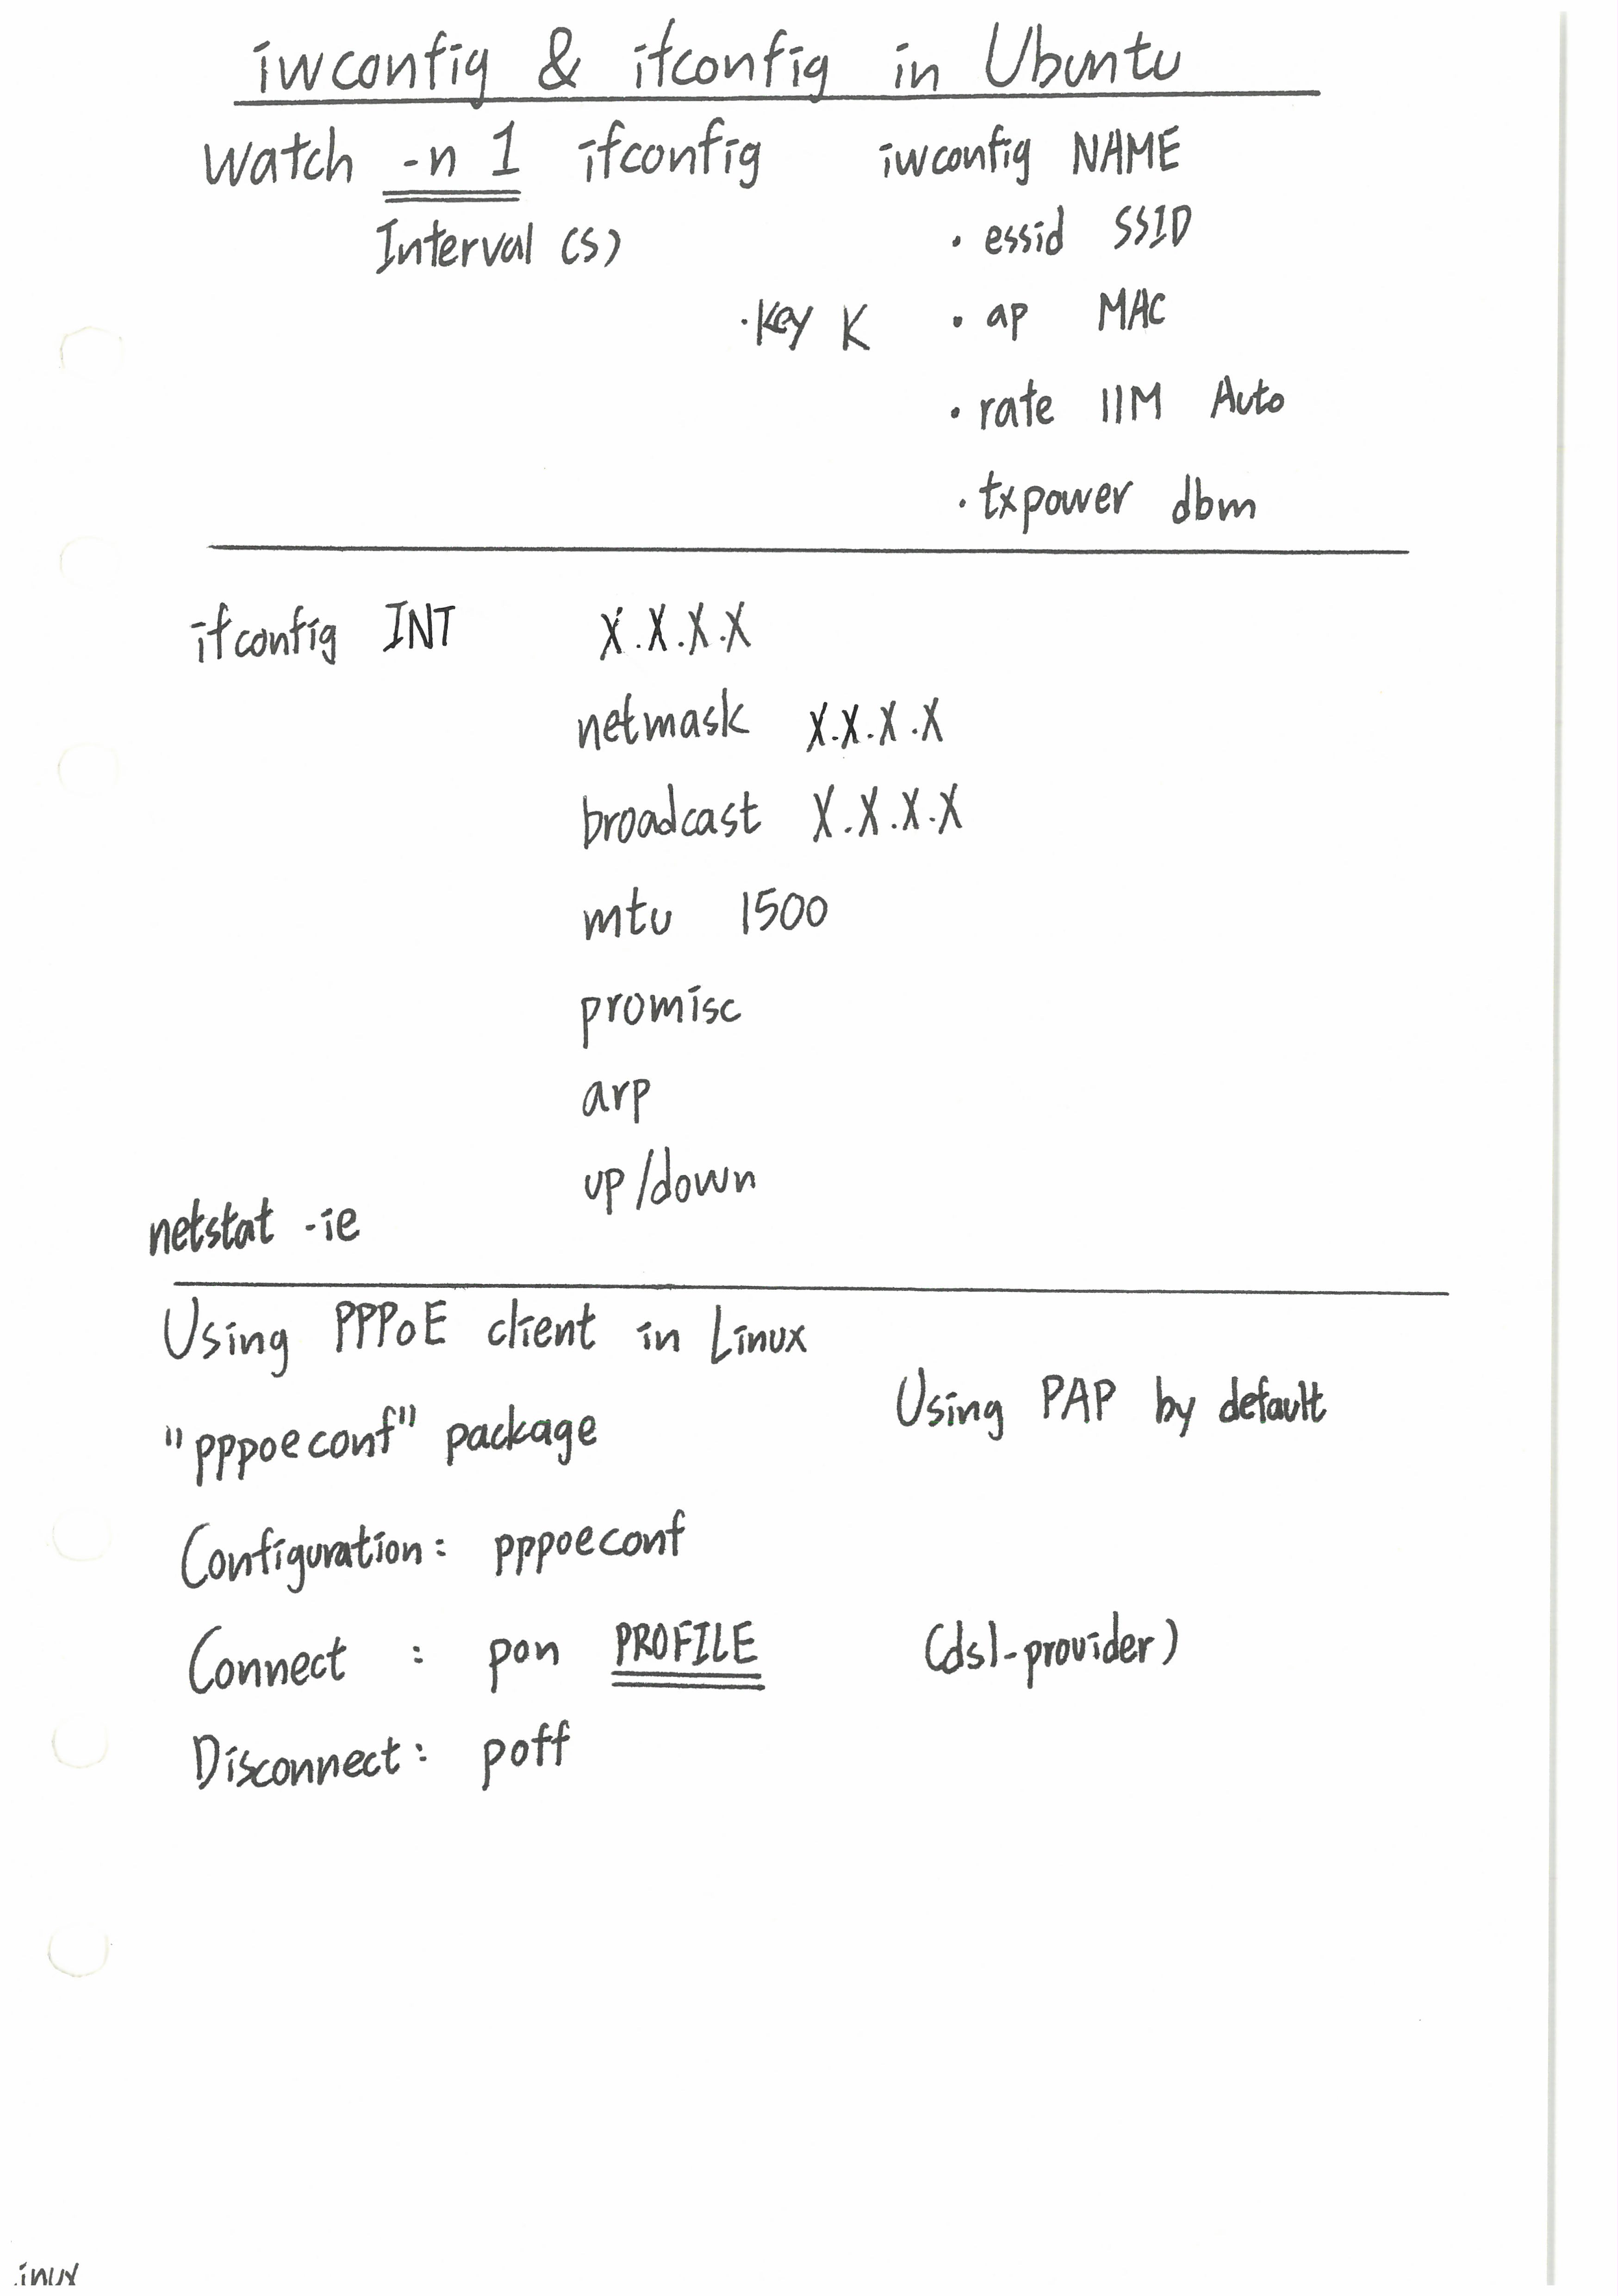 iwconfig & ifconfig in Ubuntu
watch -n 1 ifconfig
Interval (s)
iwconfig NAME
· essid SSID
· key K
· ap MAC
· rate 11M Auto
· txpower dbm
ifconfig INT X.X.X.X
netmask X.X.X.X
broadcast X.X.X.X
mtu 1500
promisc
arp
up/down
netstat -ie
Using PPPoE client in Linux
Using PAP by default
"pppoeconf" package
Configuration: pppoeconf
Connect : pon PROFILE (dsl-provider)
Disconnect: poff